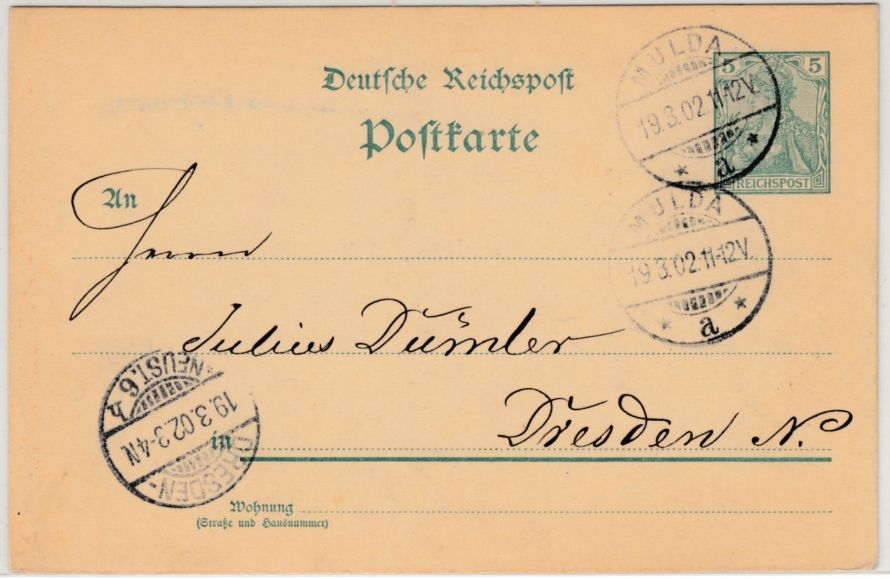 Deutsche Reichspost
Postkarte
5 5
REICHSPOST
MULDA
19.3.02.11-12V.
* a *
MULDA
19.3.02.11-12V.
* a *
An
Herrn
Julius Dümler
in Dresden N.
DRESDEN-NEUST. 6
19.3.02.3-4N
Wohnung
(Straße und Hausnummer)